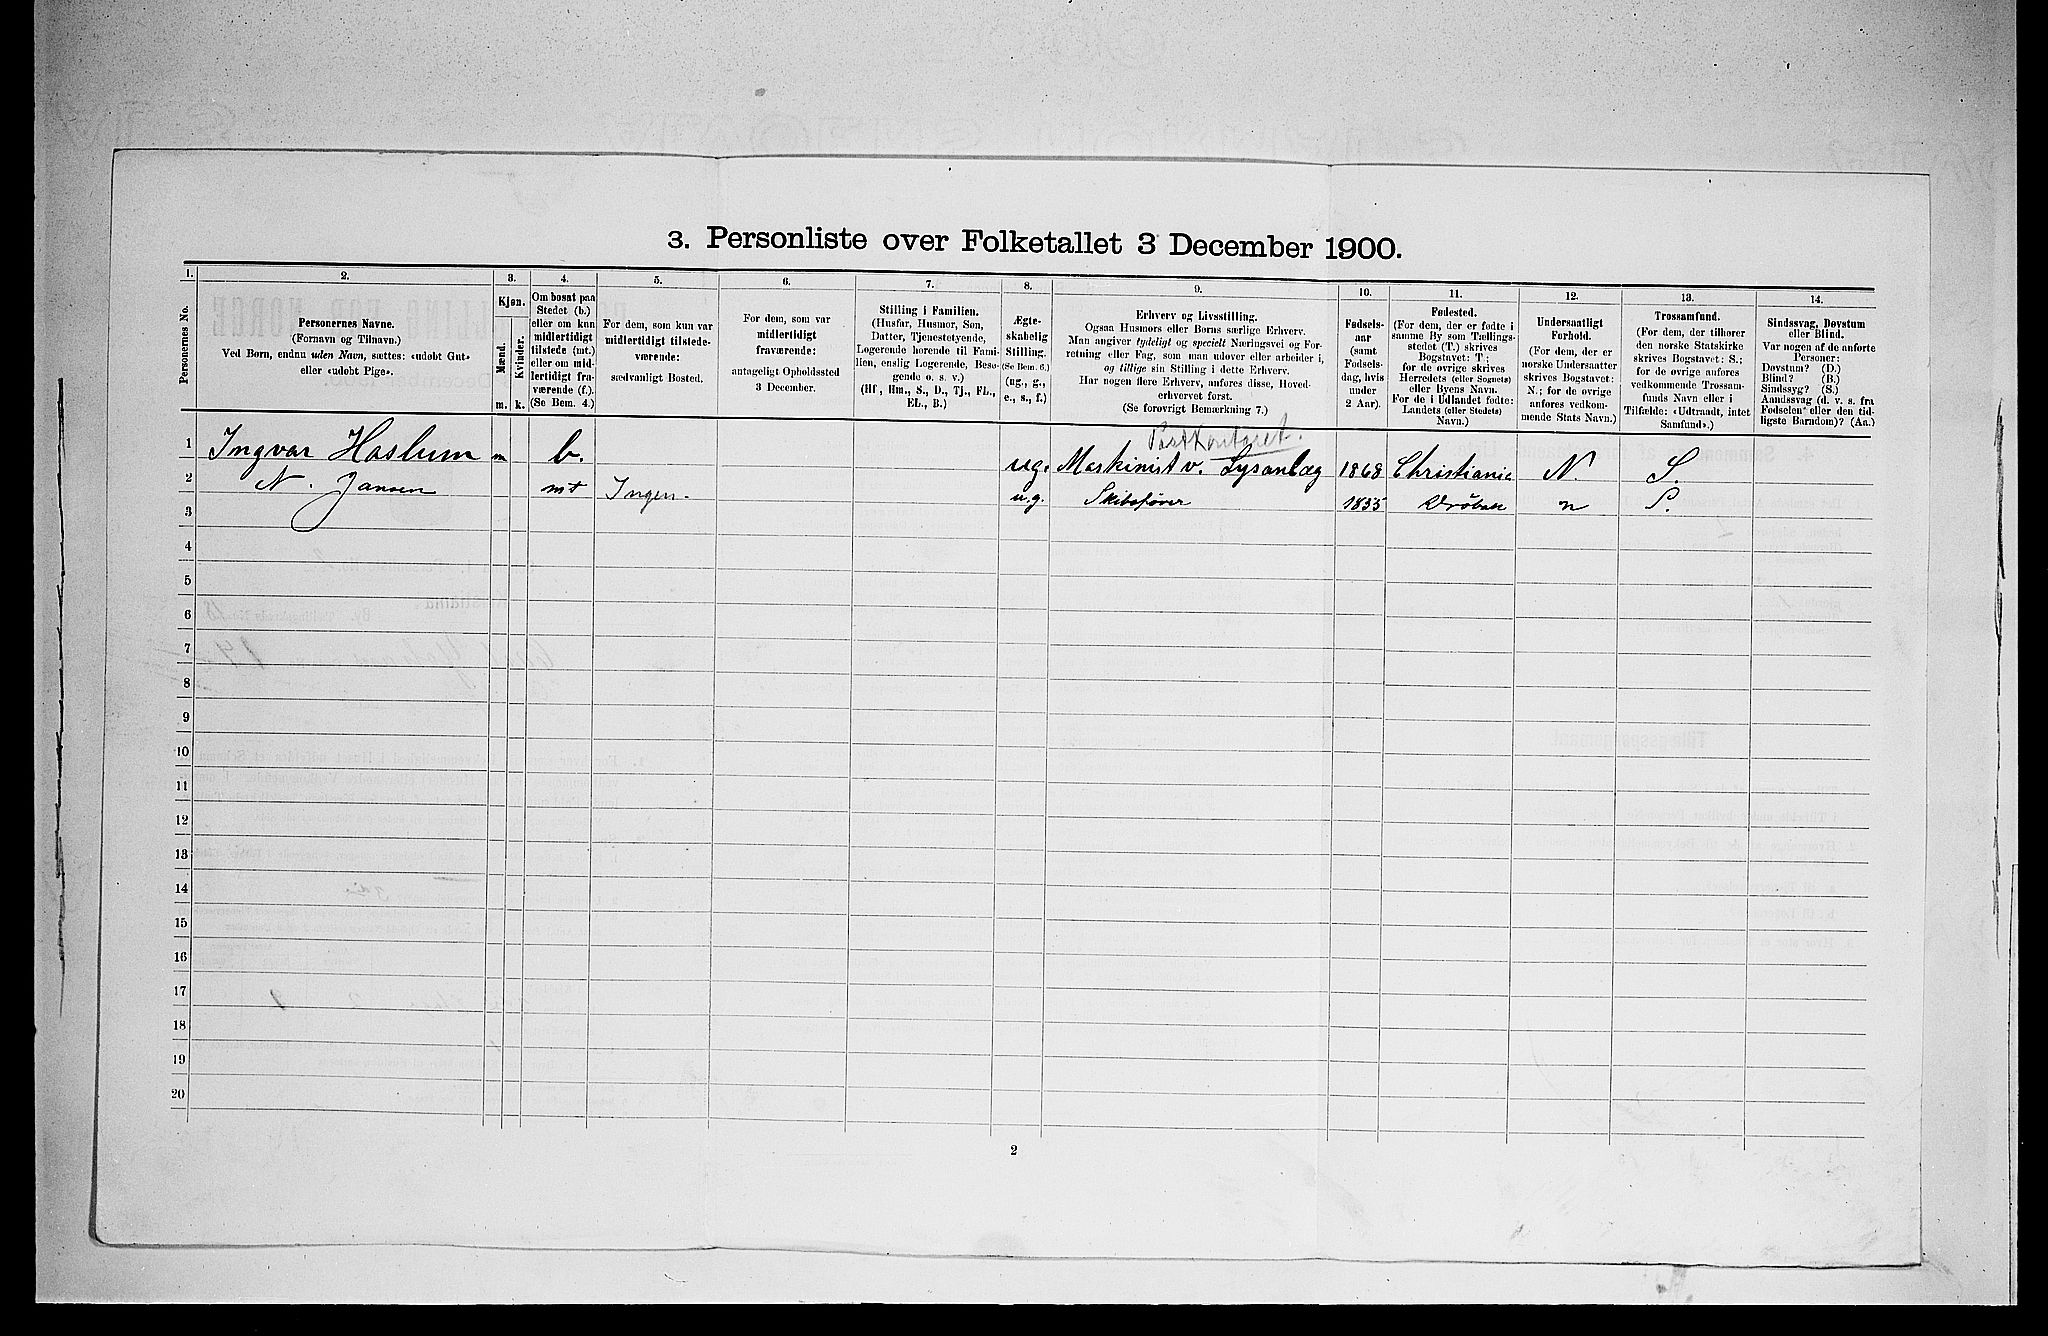 3. Personliste over Folketallet 3 December 1900.
1. 2. 3. 4. 5. 6. 7. 8. 9. 10. 11. 12. 13. 14.
Personernes No.
Personernes Navne.
(Fornavn og Tilnavn.)
Ved Børn, endnu uden Navn, sættes: «udøbt Gut»
eller «udøbt Pige».
Kjøn.
Mænd.
Kvinder.
m. k.
Om bosat paa
Stedet (b.)
eller om kun
midlertidigt
tilstede (mt.)
eller om mid-
lertidigt fra-
værende (f.).
(Se Bem. 4.)
For dem, som kun var
midlertidigt tilstede-
værende:
sædvanligt Bosted.
For dem, som var
midlertidigt
fraværende:
antageligt Opholdssted
3 December.
Stilling i Familien.
(Husfar, Husmor, Søn,
Datter, Tjenestetyende,
Logerende hørende til Fami-
lien, enslig Logerende, Besø-
gende o. s. v.)
(Hf, Hm., S., D., Tj., FL.,
EL., B.)
Ægte-
skabelig
Stilling.
(Se Bem. 6.)
(ug., g.,
e., s., f.)
Erhverv og Livsstilling.
Ogsaa Husmors eller Børns særlige Erhverv.
Man angiver tydeligt og specielt Næringsvei og For-
retning eller Fag, som man udøver eller arbeider i,
og tillige sin Stilling i dette Erhverv.
Har nogen flere Erhverv, anføres disse, Hoved-
erhvervet først.
(Se forøvrigt Bemærkning 7.)
Fødsels-
aar
(samt
Fødsels-
dag, hvis
under
2 Aar).
Fødested.
(For dem, der er fødte i
samme By som Tællings-
stedet (T.) skrives
Bogstavet: T;
for de øvrige skrives
Herredets (eller Sognets)
eller Byens Navn.
For de i Udlandet fødte:
Landets (eller Stedets)
Navn.)
Undersaatligt
Forhold.
(For dem, der er
norske Undersaatter
skrives Bogstavet:
N.; for de øvrige
anføres vedkom-
mende Stats Navn.)
Trossamfund.
(For dem, der tilhører
den norske Statskirke
skrives Bogstavet: S.;
for de øvrige anføres
vedkommende Trossam-
funds Navn eller i
Tilfælde: «Udtraadt, intet
Samfund».)
Sindssvag, Døvstum
eller Blind.
Var nogen af de anførte
Personer:
Døvstum? (D.)
Blind? (B.)
Sindssyg? (S.)
Aandssvag (d. v. s. fra
Fødselen eller den tid-
ligste Barndom)? (Aa.)
Postkontoret.
1 Ingvar Haslum m b. ug. Maskinist v. Lysanlæg 1868 Christiania N. S.
2 N. Jansen mt Ingen. u.g. Skibsfører 1835 Drøbak n S.
3
4
5
6
7
8
9
10
11
12
13
14
15
16
17
18
19
20
2